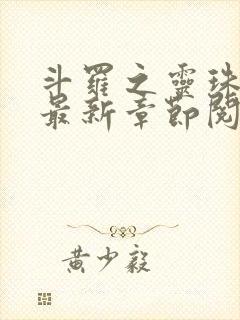 斗羅之靈珠
最新章節閱
黃少毅